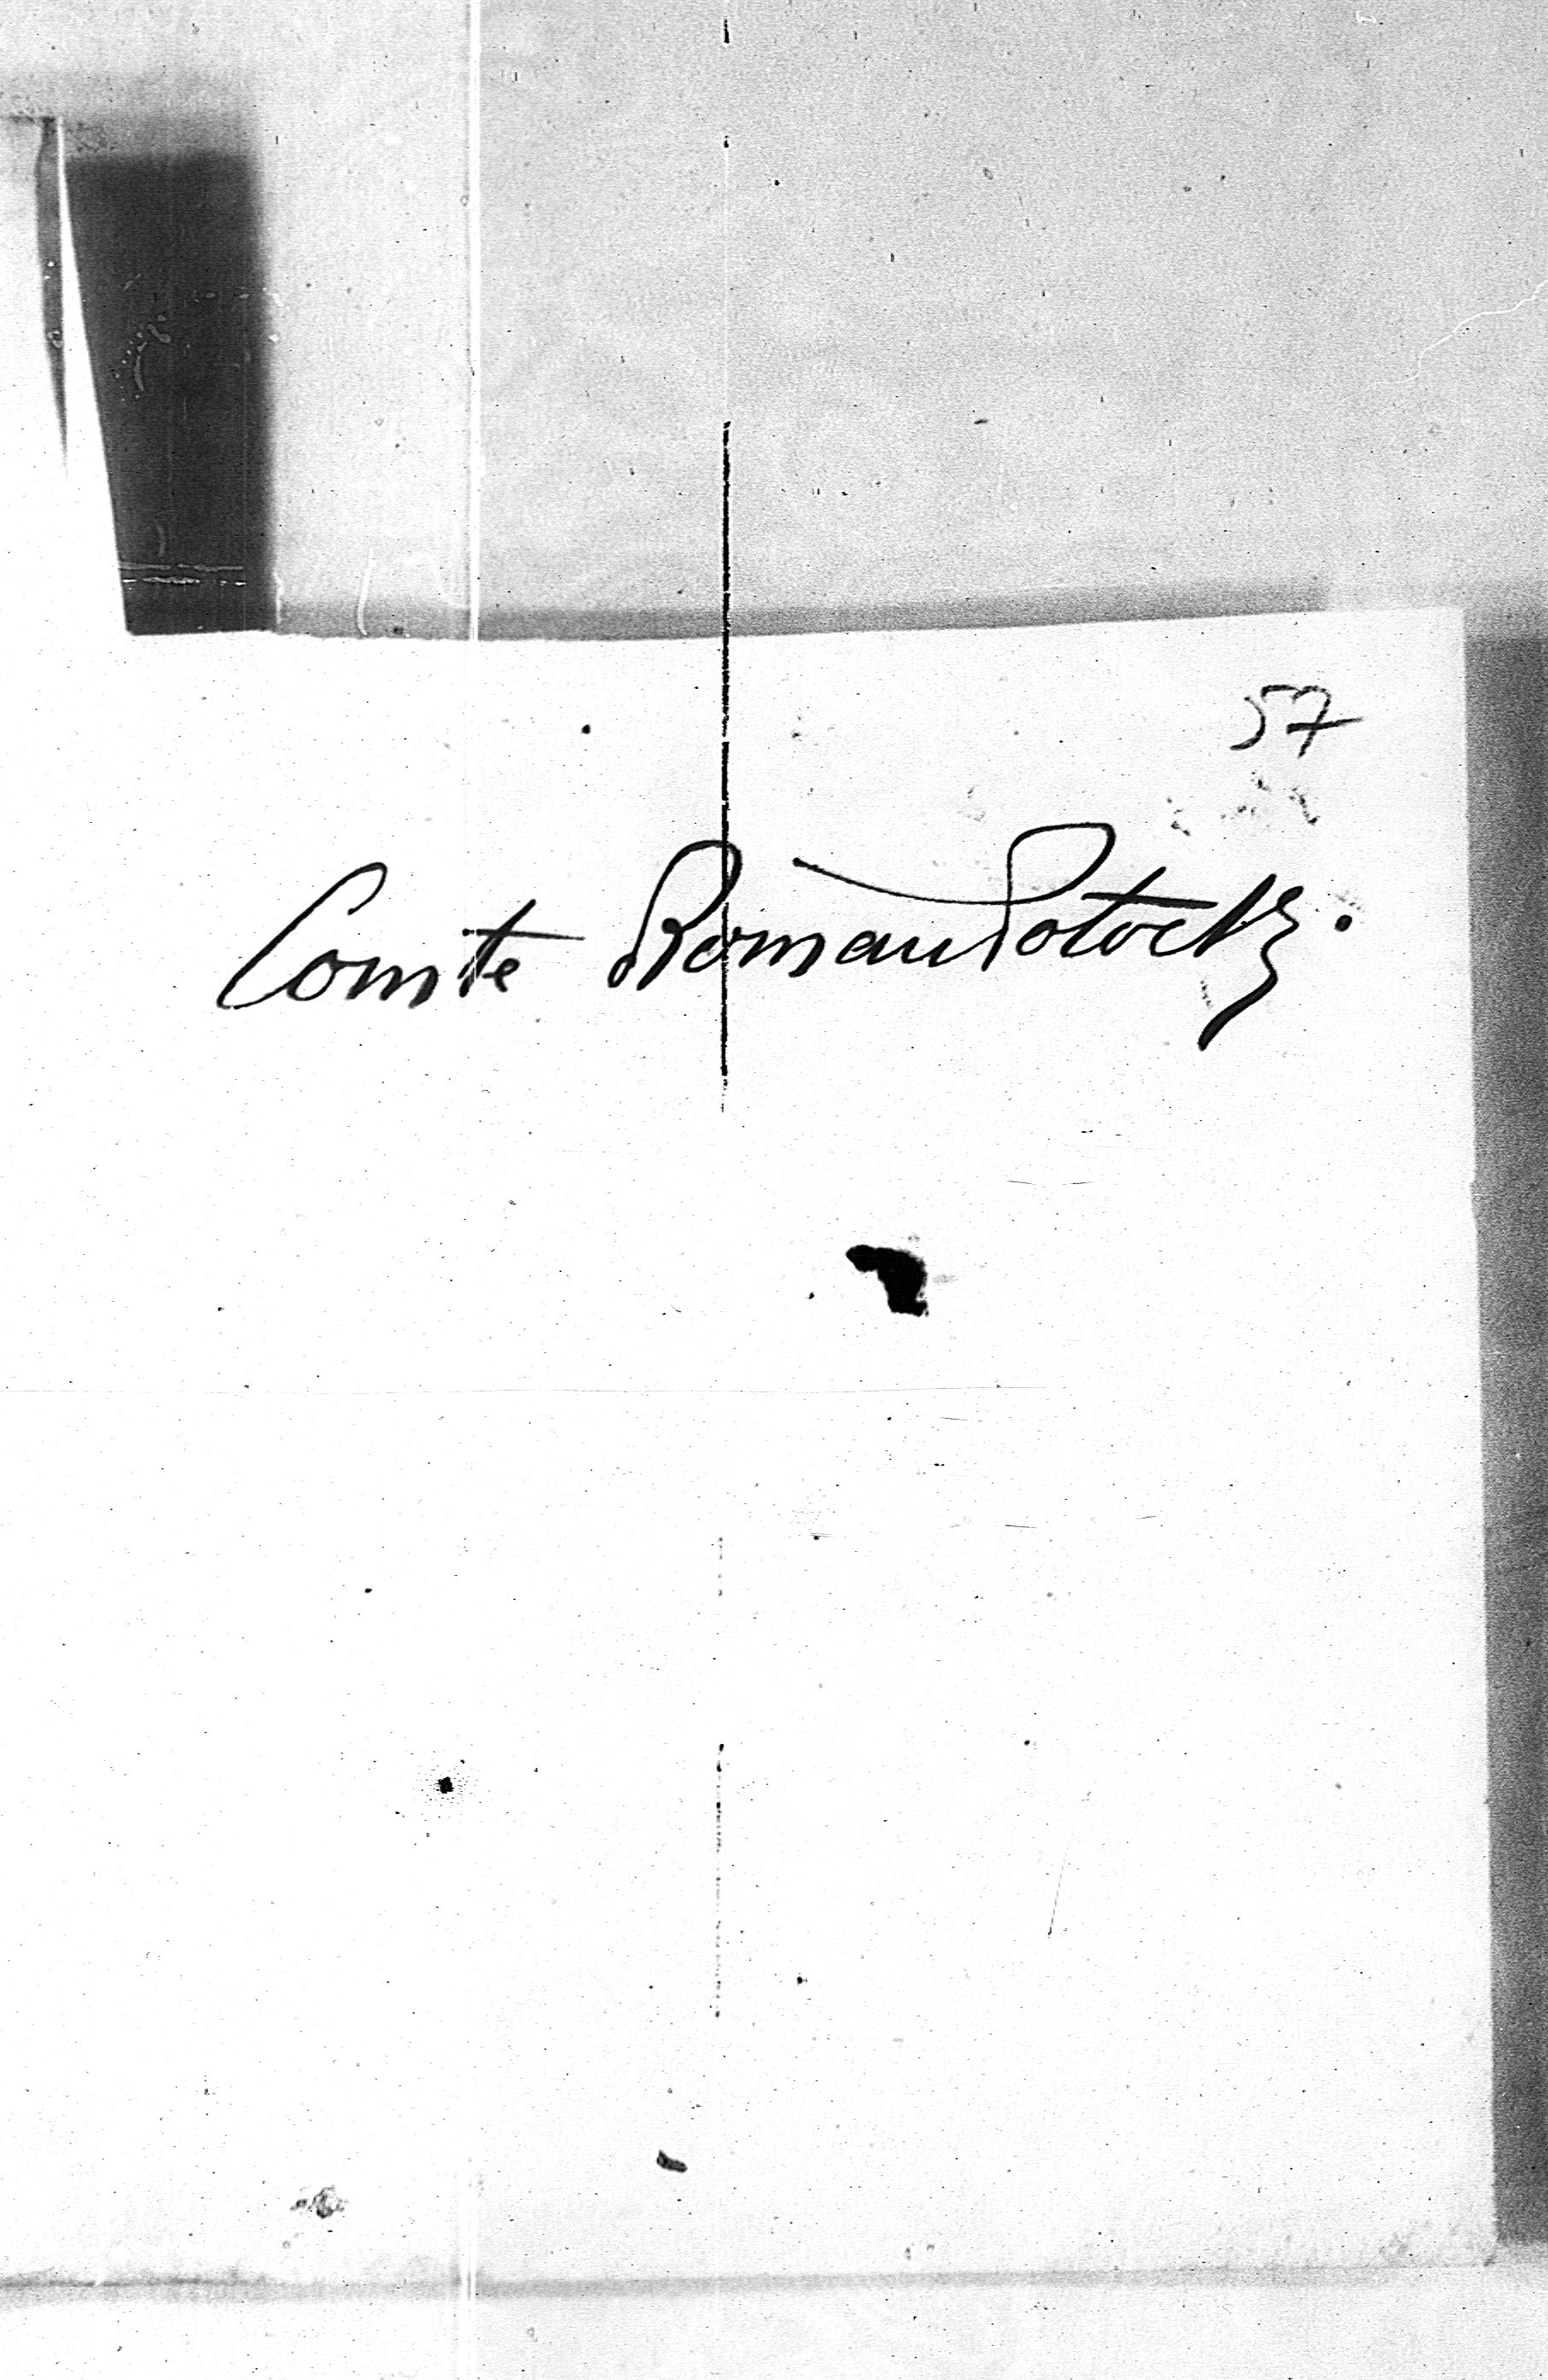 57
Comte Roman Potocki.